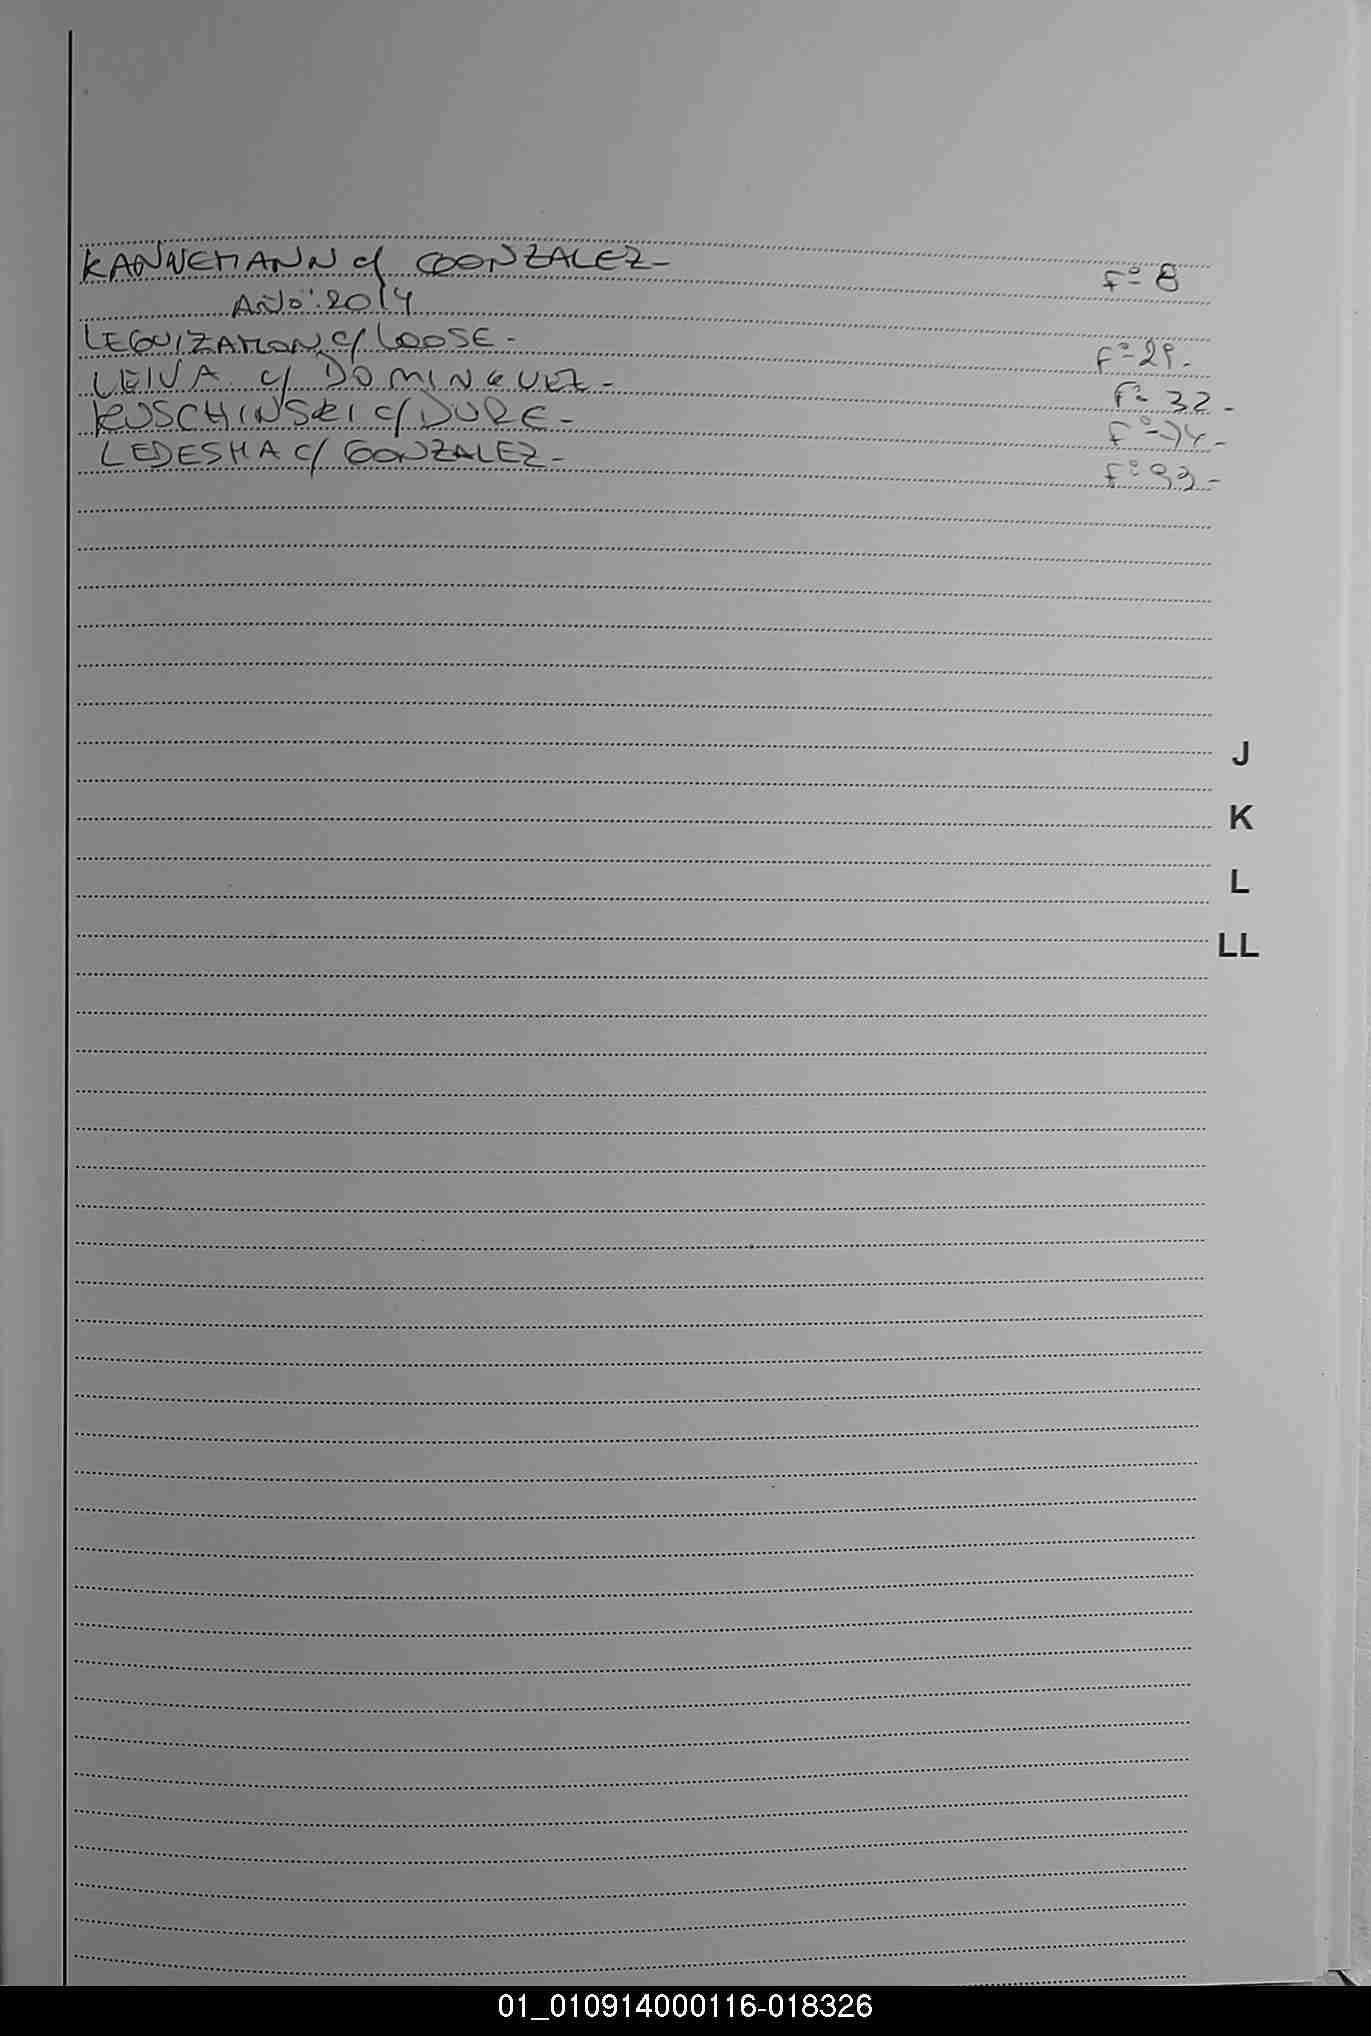 KANNEMANN c/ GONZALEZ- Fº 8
AÑO: 2014
LEGUIZAMON c/ LOOSE- Fº 29-
LEIVA c/ DOMINGUEZ- Fº 32-
KUSCHINSKI c/ DURE- Fº 74-
LEDESMA c/ GONZALEZ- Fº 93-
J
K
L
LL
01_010914000116-018326